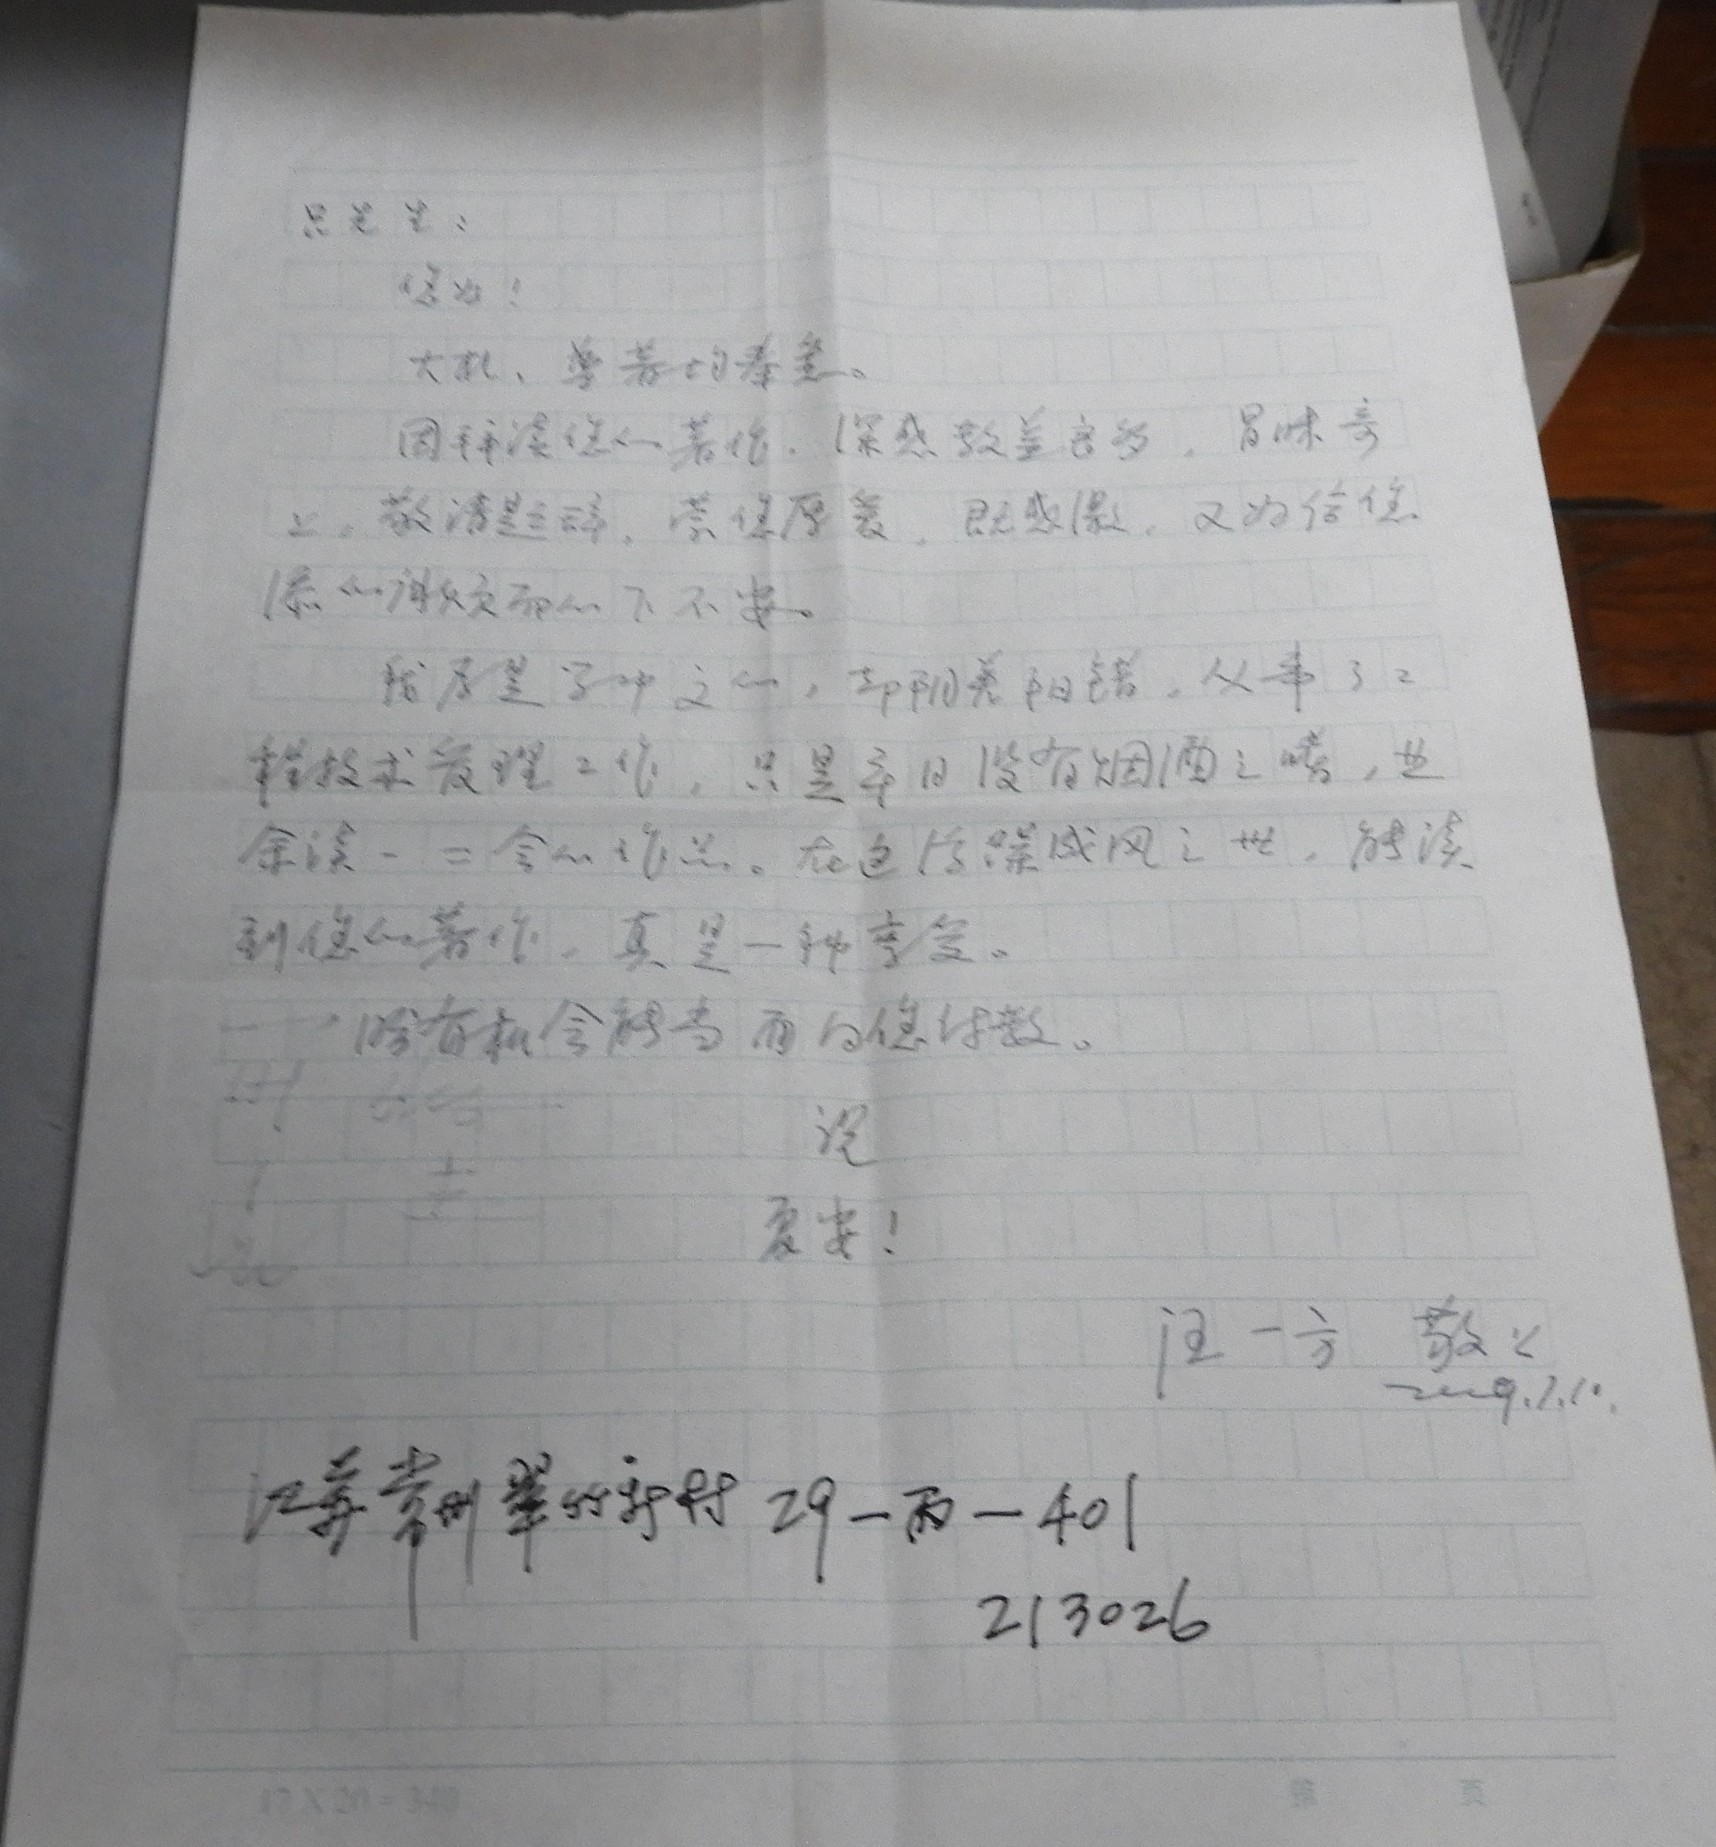 吕先生：
您好！
大札、尊著均奉悉。
因拜读您的著作，深感教益良多，冒昧寄
上，敬请题辞，蒙您厚爱，既感激，又为给您
添的麻烦而心下不安。
我原是学中文的，却阴差阳错，从事了工
程技术管理工作，只是平日没有烟酒之嗜，业
余读一二会心作品。在这浮躁成风之世，能读
到您的著作，真是一种享受。
盼有机会能当面向您请教。
祝
夏安！
汪一方 敬上
2009.7.10.
江苏常州翠竹新村29－丙－401
213026
15×20=300
第 页